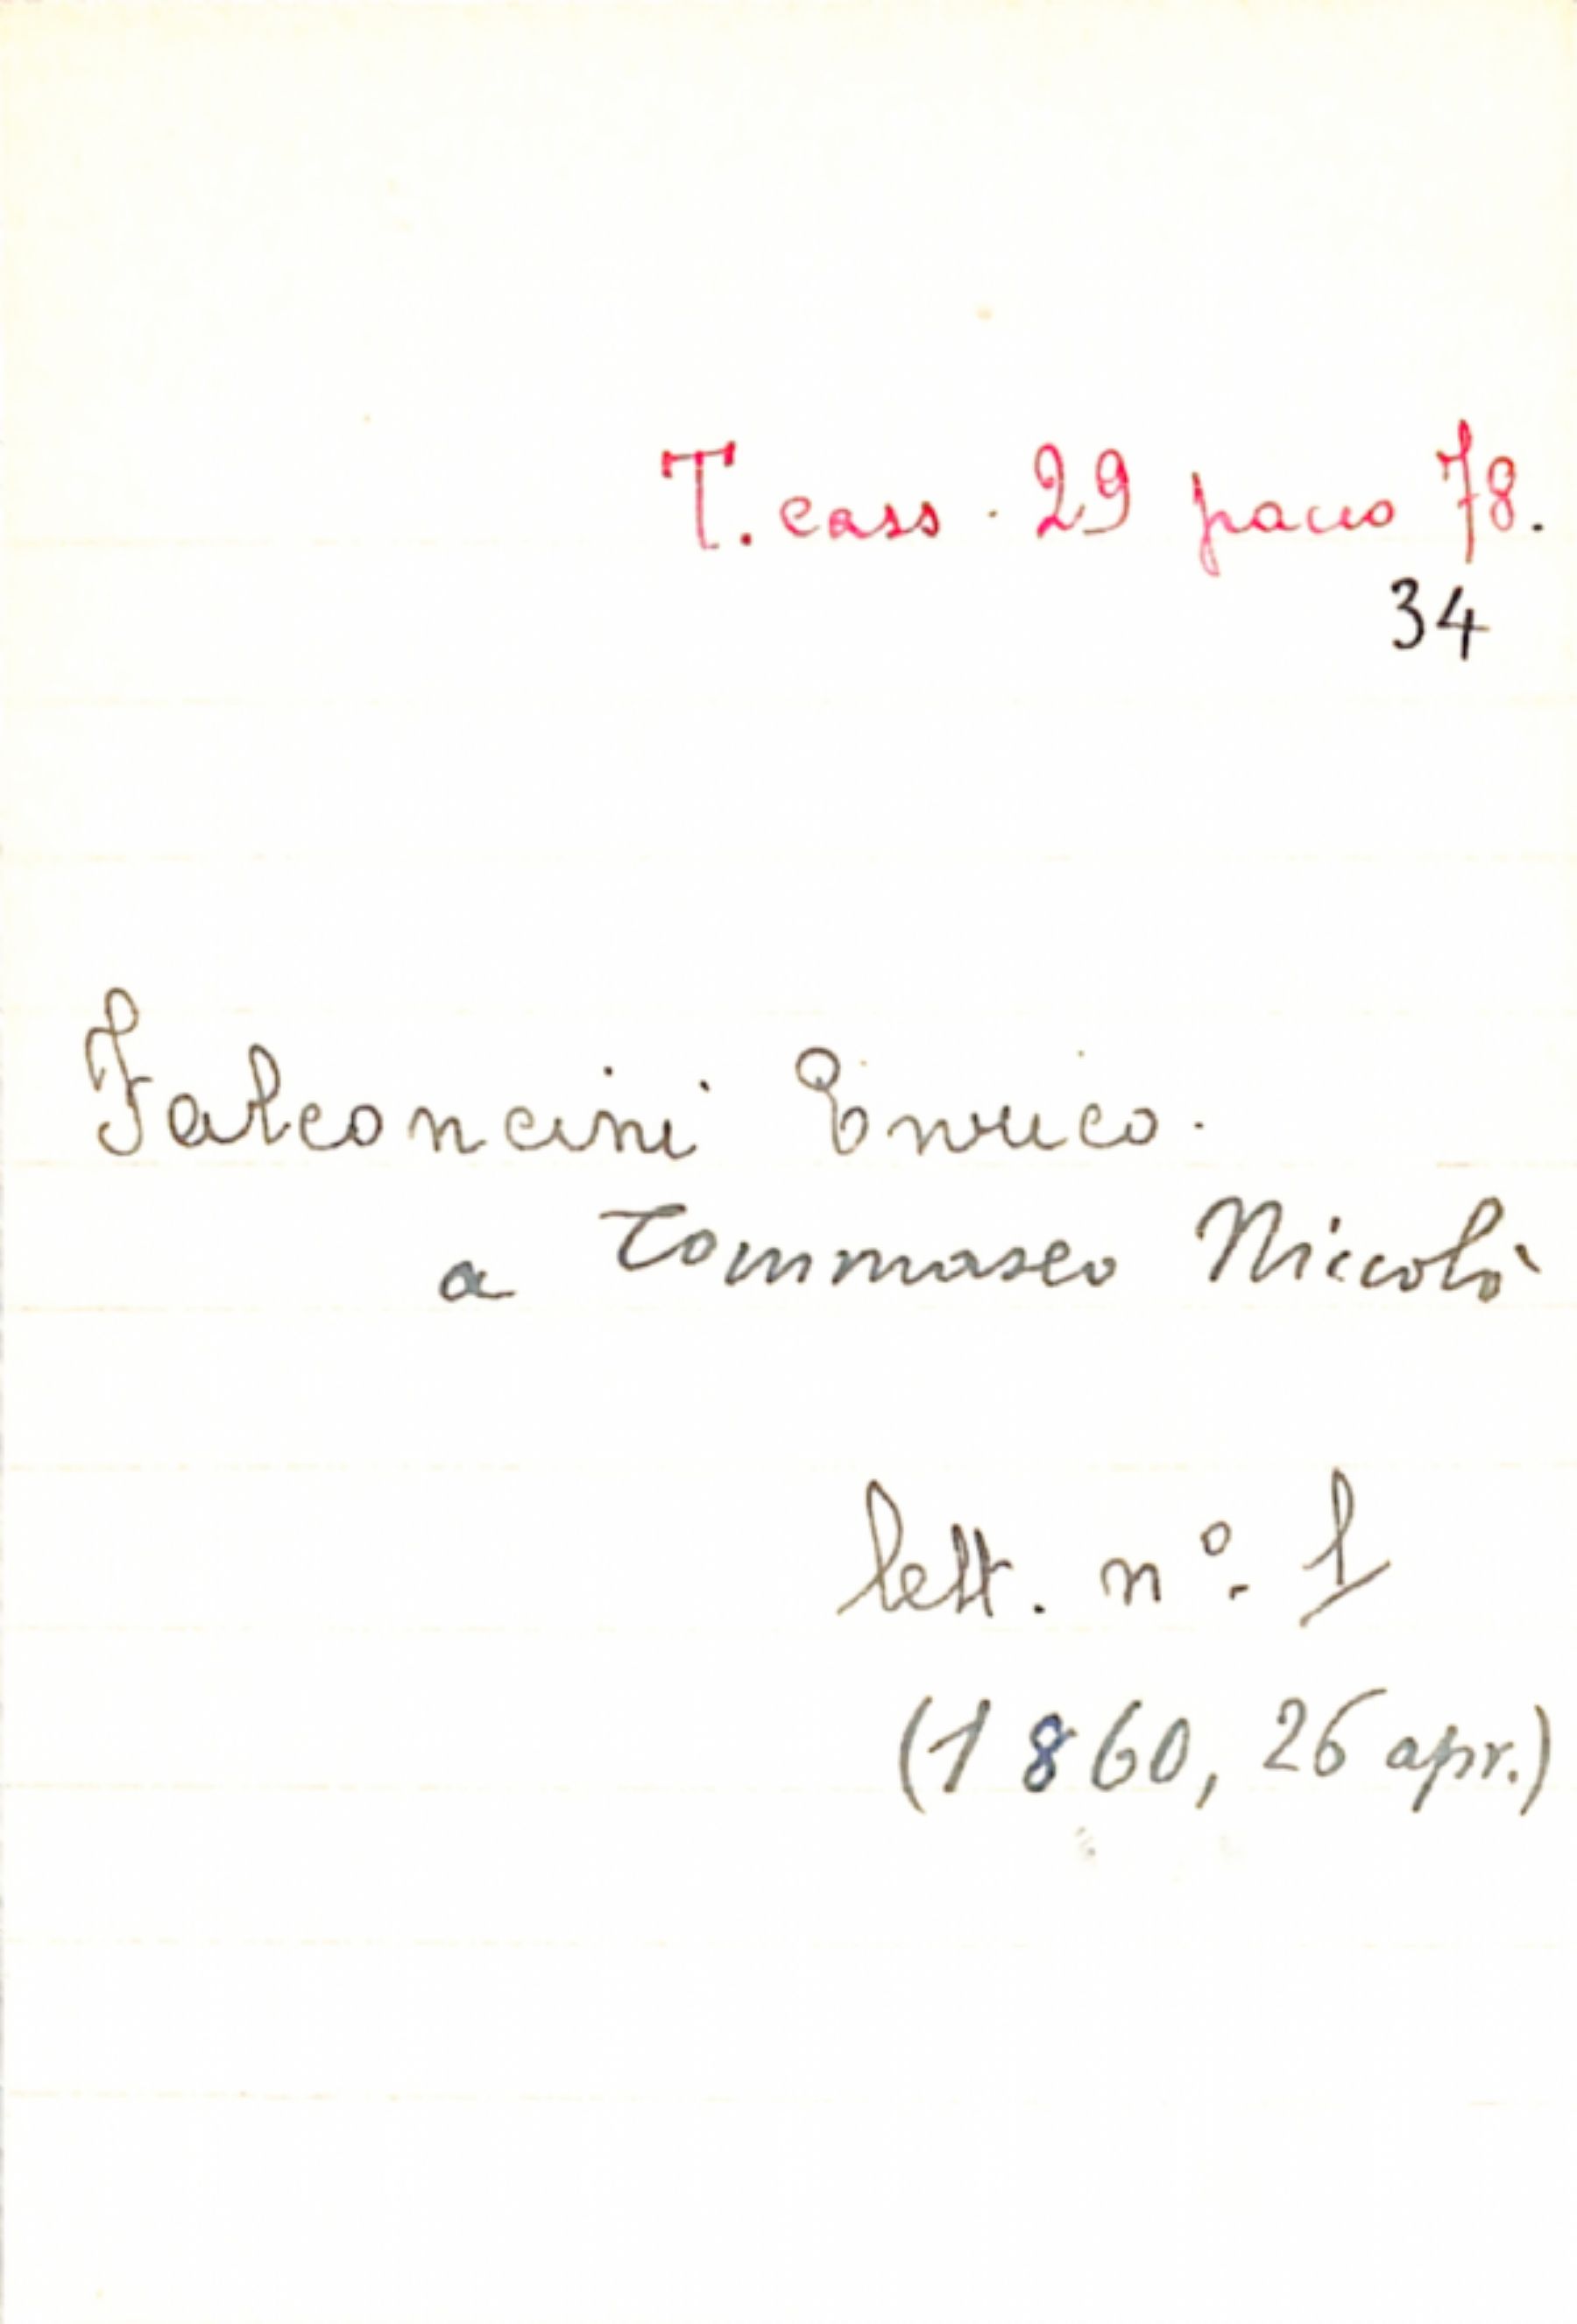 T. cass. 29 pacco 78.
34
Falconcini Enrico.
a Tommaseo Niccolò
lett. nº. 1
(1860, 26 apr.)